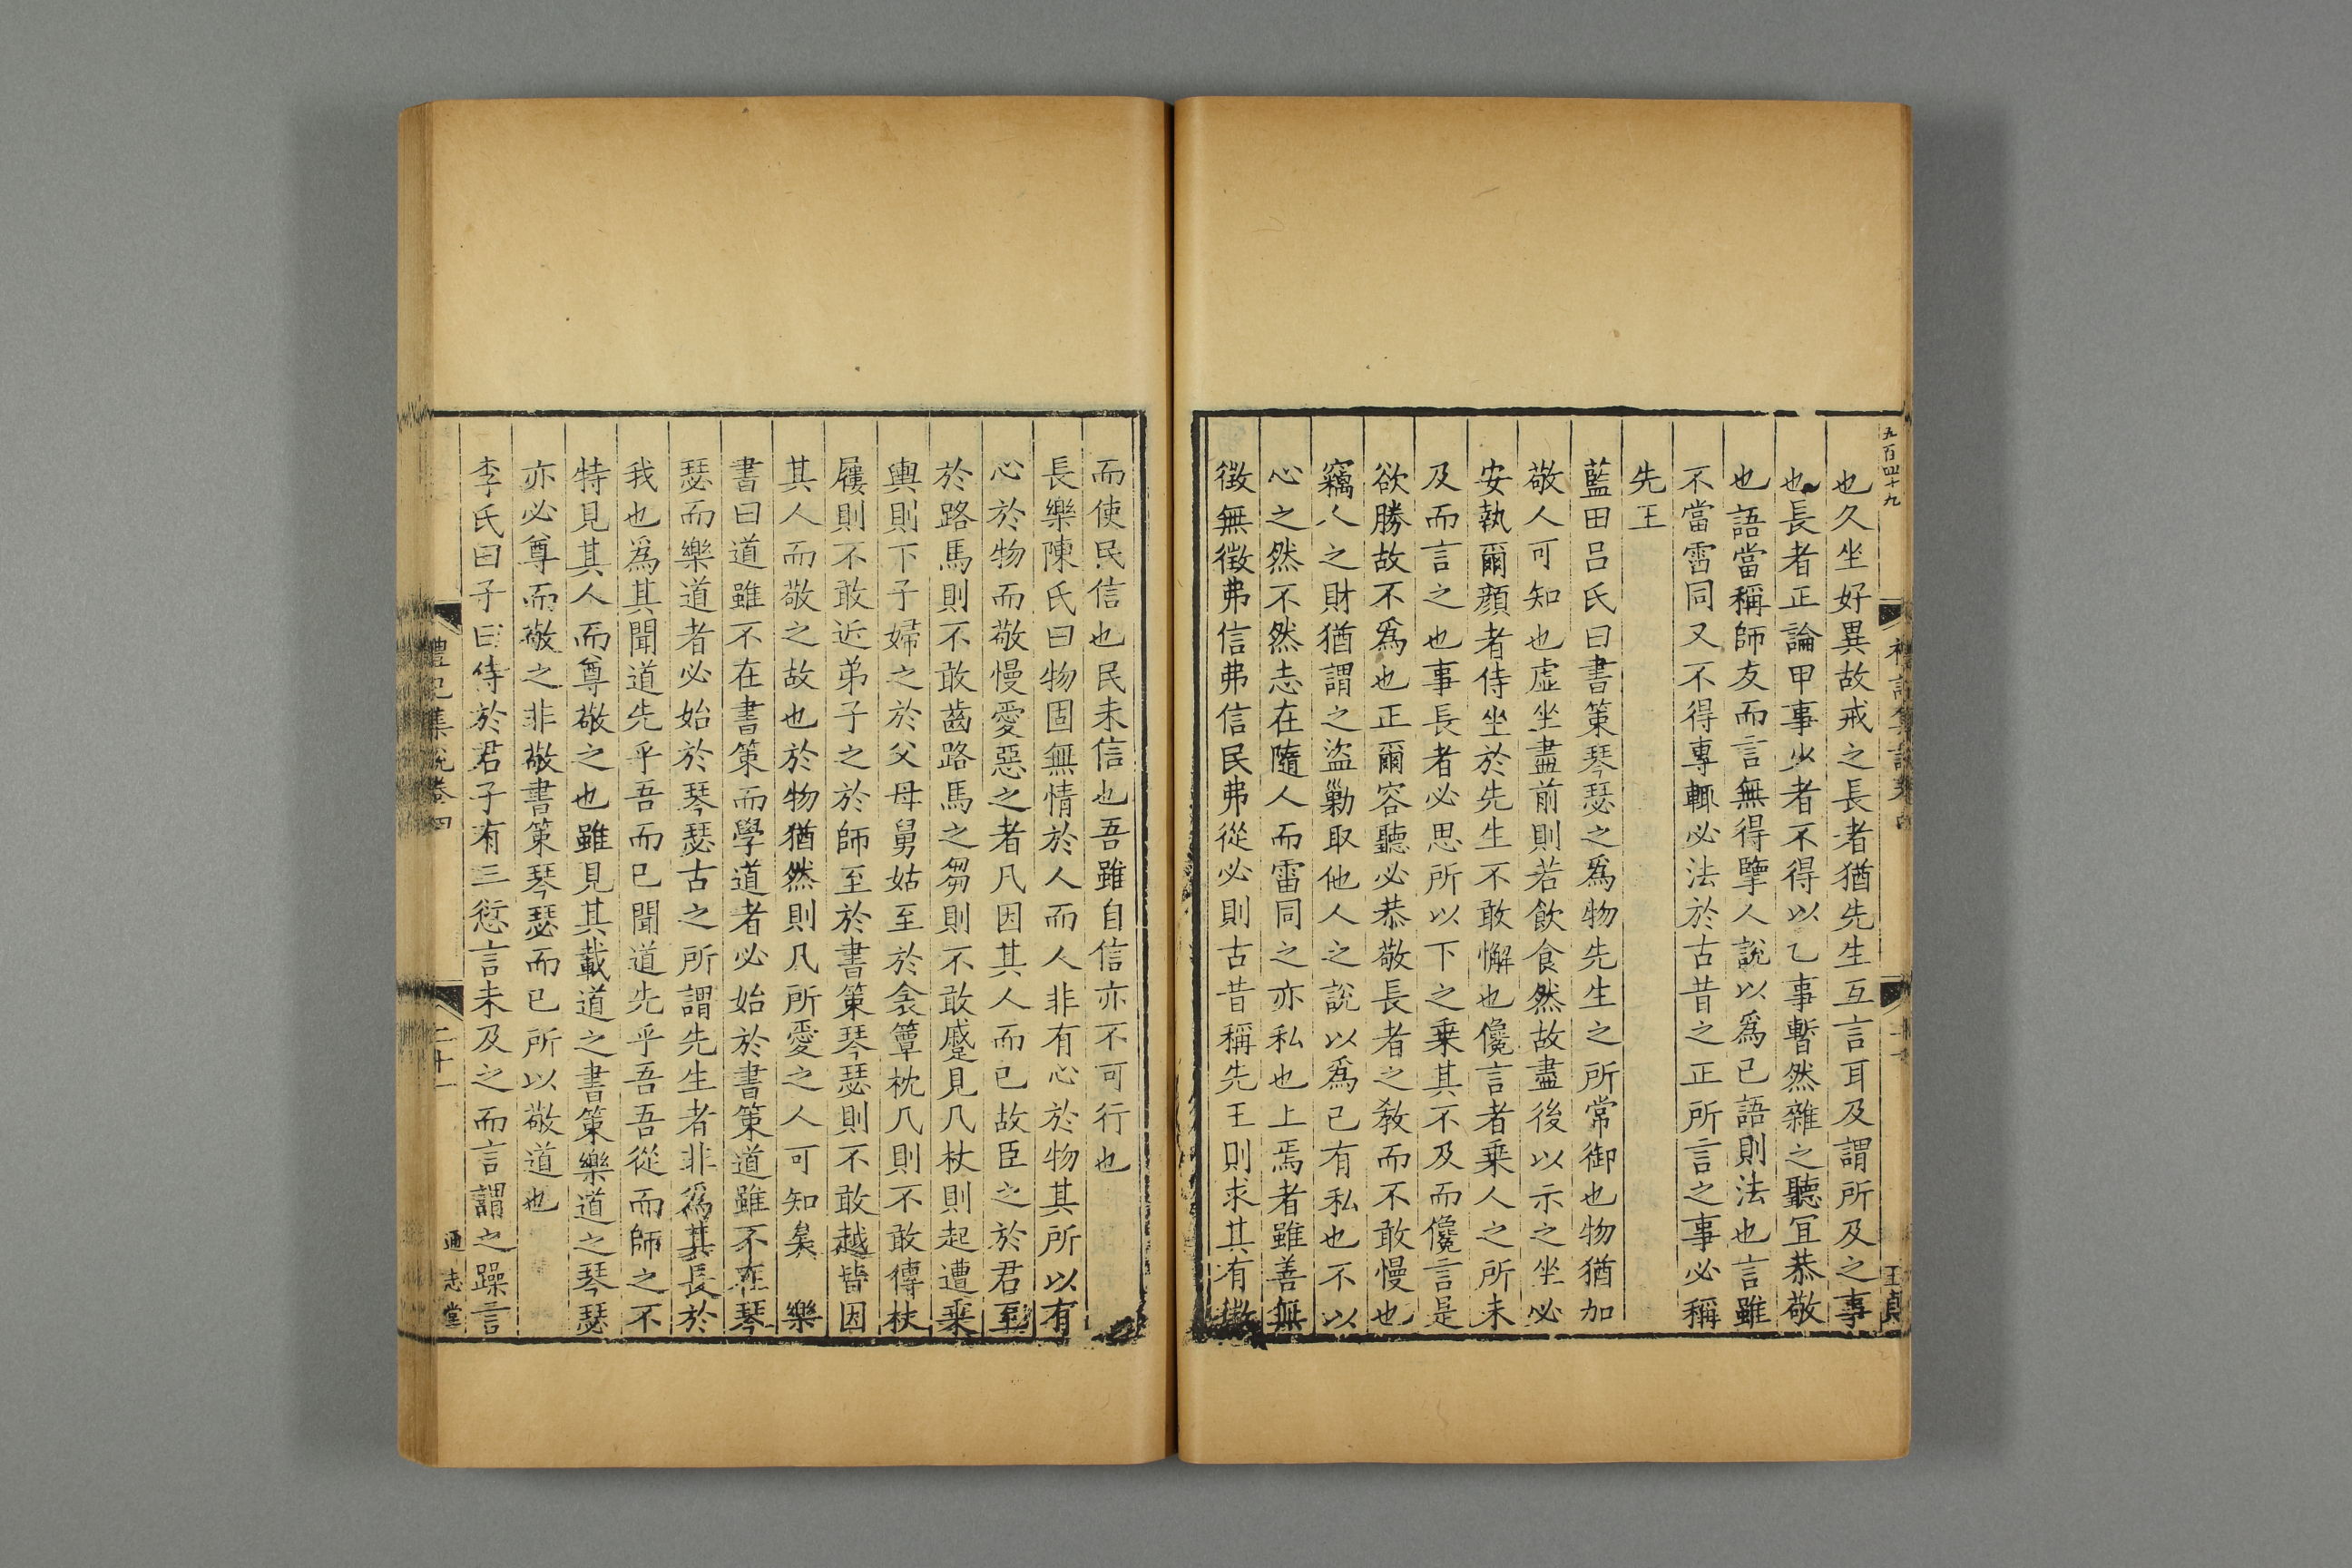 五百四十九
也久坐好異故戒之長者猶先生互言耳及謂所及之事
也長者正論甲事少者不得以乙事暫然雜之聽冝恭敬
也語當稱師友而言無得擥人說以爲己語則法也言雖
不當雷同又不得專輒必法於古昔之正所言之事必稱
先王
藍田呂氏曰書策琴瑟之爲物先生之所常御也物猶加
敬人可知也虛坐盡前則若飲食然故盡後以示之坐必
安執爾顏者侍坐於先生不敢懈也儳言者乗人之所未
及而言之也事長者必思所以下之乗其不及而儳言是
欲勝故不爲也正爾容聽必恭敬長者之教而不敢慢也
竊人之財猶謂之盜勦取他人之說以爲己有私也不以
心之然不然志在隨人而雷同之亦私也上焉者雖善無
徴無徴弗信弗信民弗從必則古昔稱先王則求其有徴
王貞
而使民信也民未信也吾雖自信亦不可行也
長樂陳氏曰物固無情於人而人非有心於物其所以有
心於物而敬慢愛惡之者凡因其人而已故臣之於君至
於路馬則不敢齒路馬之芻則不敢蹙見几杖則起遭乗
輿則下子婦之於父母舅姑至於衾簟枕几則不敢傳杖
屨則不敢近弟子之於師至於書策琴瑟則不敢越皆因
其人而敬之故也於物猶然則凡所愛之人可知矣 樂
書曰道雖不在書策而學道者必始於書策道雖不在琴
瑟而樂道者必始於琴瑟古之所謂先生者非爲其長於
我也爲其聞道先乎吾而已聞道先乎吾吾從而師之不
特見其人而尊敬之也雖見其載道之書策樂道之琴瑟
亦必尊而敬之非敬書策琴瑟而已所以敬道也
李氏曰子曰侍於君子有三愆言未及之而言謂之躁言
禮記集說卷四
二十一
通志堂